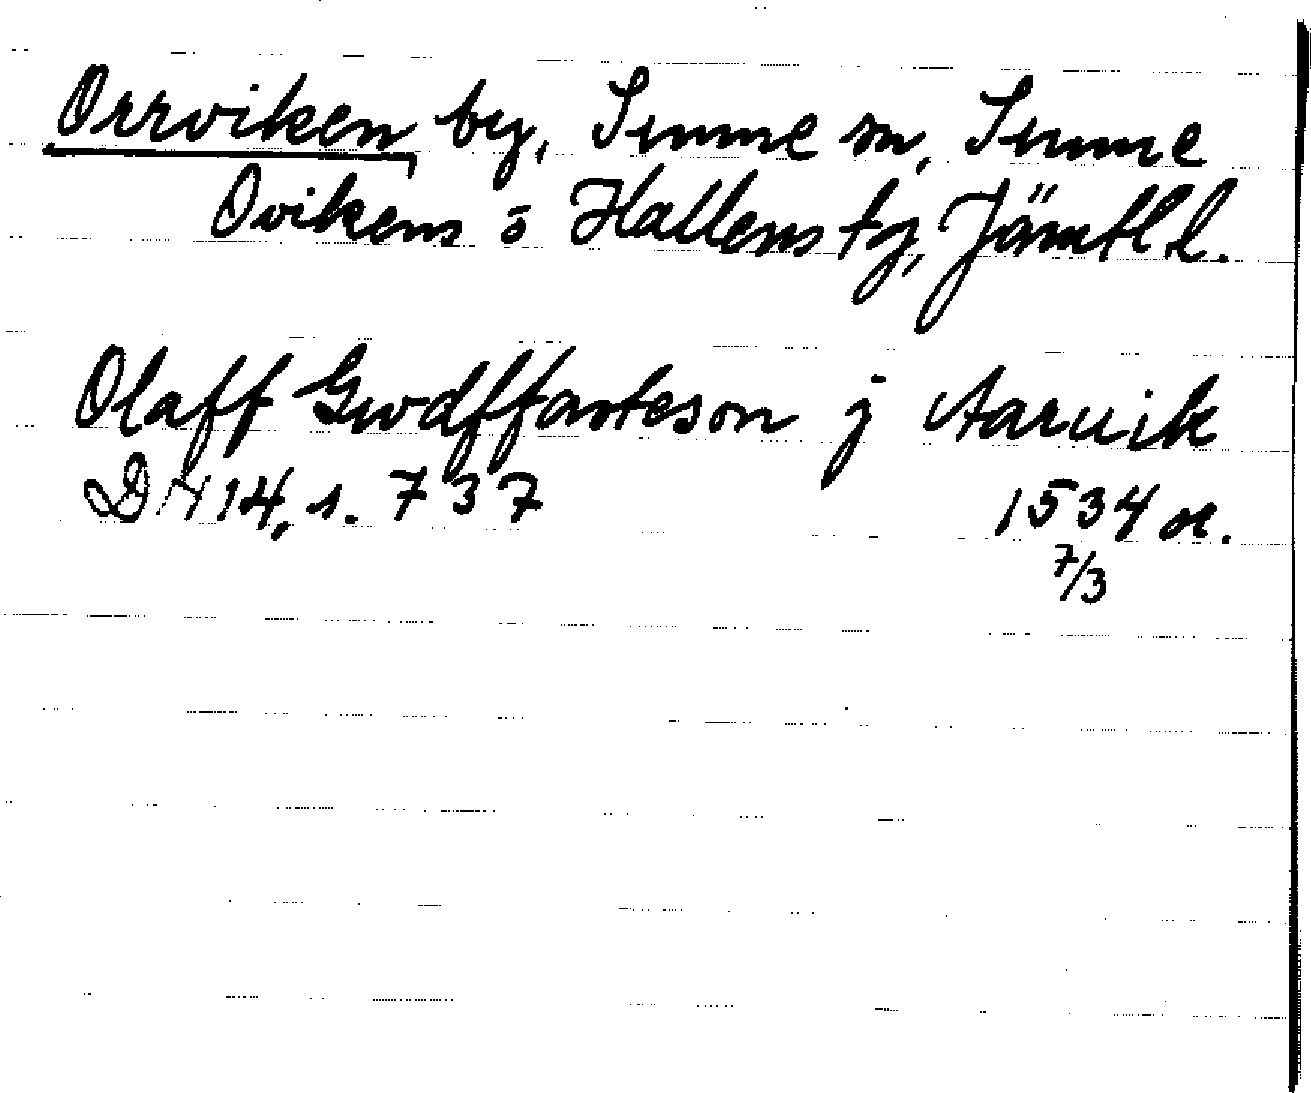 Orrviken by, Sunne sn, Sunne
Ovikens o Hallens tg, Jämtl l.
Olaff Gwdffasteson j Aaruik
DN 14, s. 737 1534 or.
7/3